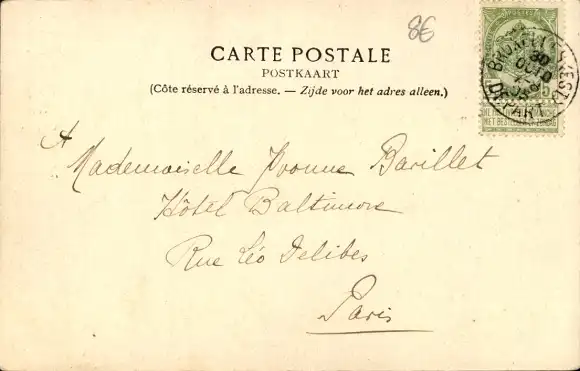 8€
CARTE POSTALE
POSTKAART
(Côte réservé à l'adresse. — Zijde voor het adres alleen.)
POSTES
30
DEPART
A
Mademoiselle Yvonne Barillet
Hôtel Baltimore
Rue Léo Delibes
Paris